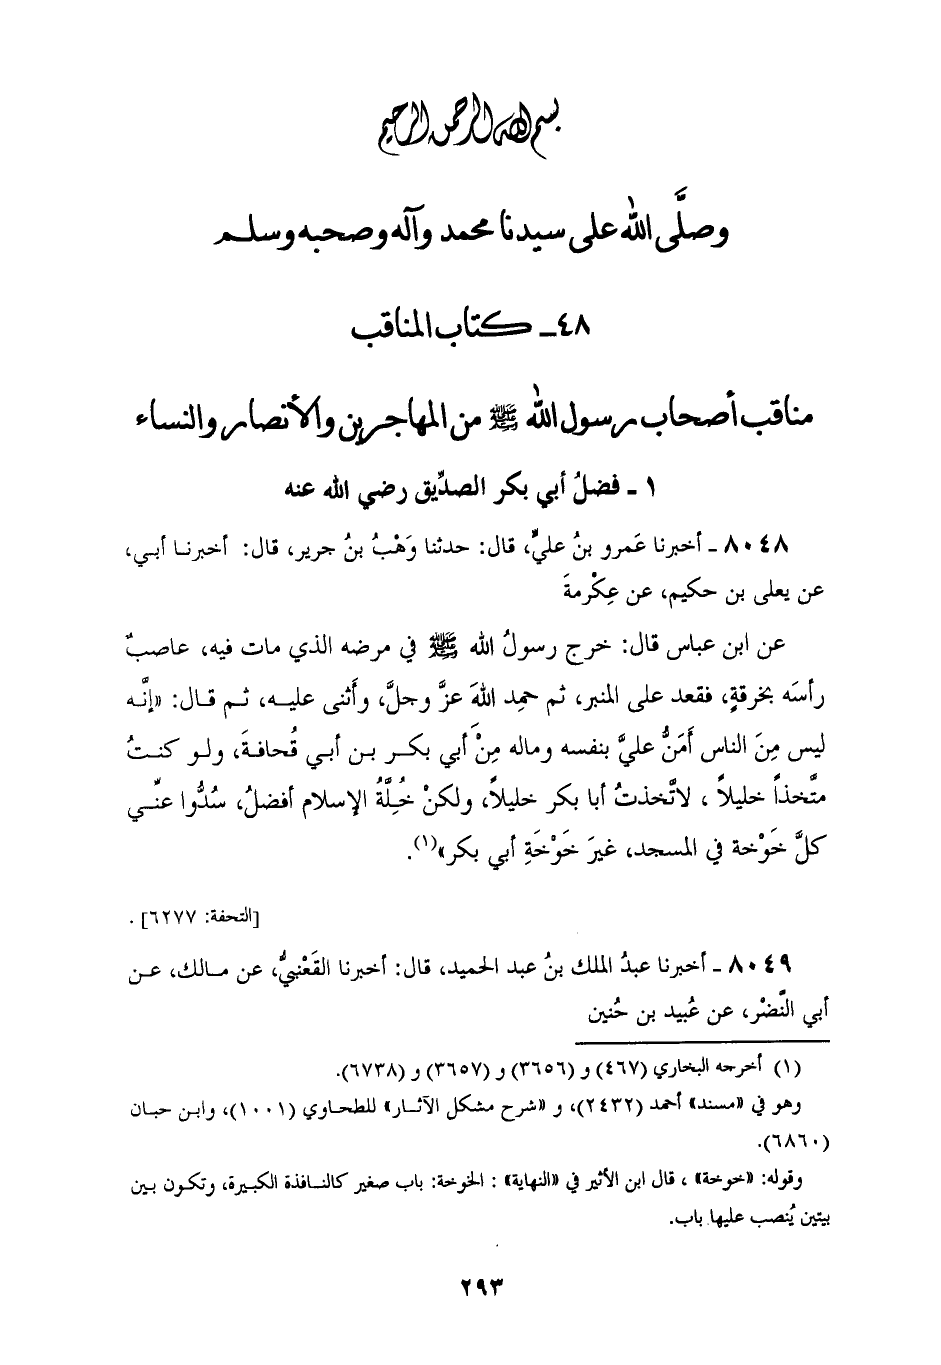 بسم الله الرحمن الرحيم
وصلَّى الله على سيدنا محمد وآله وصحبه وسلم
٤٨ـ كتاب المناقب
مناقب أصحاب رسول الله ﷺ من المهاجرين والأنصار والنساء
١ - فضلُ أبي بكر الصدِّيق رضي الله عنه
٨٠٤٨ - أخبرنا عَمرو بنُ عليٍّ، قال: حدثنا وَهْبُ بنُ جرير، قال: أخبرنا أبي،
عن يعلى بن حكيم، عن عِكْرمةَ
عن ابن عباس قال: خرج رسولُ الله ﷺ في مرضه الذي مات فيه، عاصبٌ
رأسَه بخرقةٍ، فقعد على المنبر، ثم حمِد اللهَ عزَّ وجلَّ، وأَثنى عليه، ثم قال: «إنَّه
ليس مِنَ الناس أَمَنُّ عليَّ بنفسه وماله مِنْ أبي بكر بن أبي قُحافةَ، ولو كنتُ
متَّخذاً خليلاً، لاتَّخذتُ أبا بكر خليلاً، ولكنْ خُلَّةُ الإسلام أفضلُ، سُدُّوا عنِّي
كلَّ خَوْخة في المسجد، غيرَ خَوْخَةِ أبي بكر»(١).
[التحفة: ٦٢٧٧] .
٨٠٤٩ - أخبرنا عبدُ الملك بنُ عبد الحميد، قال: أخبرنا القَعْنبيُّ، عن مالك، عن
أبي النَّضْر، عن عُبيد بن حُنين
(١) أخرجه البخاري (٤٦٧) و (٣٦٥٦) و (٣٦٥٧) و (٦٧٣٨).
وهو في «مسند» أحمد (٢٤٣٢)، و «شرح مشكل الآثار» للطحاوي (١٠٠١)، وابن حبان
(٦٨٦٠).
وقوله: «خوخة» ، قال ابن الأثير في «النهاية» : الخوخة: باب صغير كالنافذة الكبيرة، وتكون بين
بيتين يُنصب عليها باب.
٢٩٣